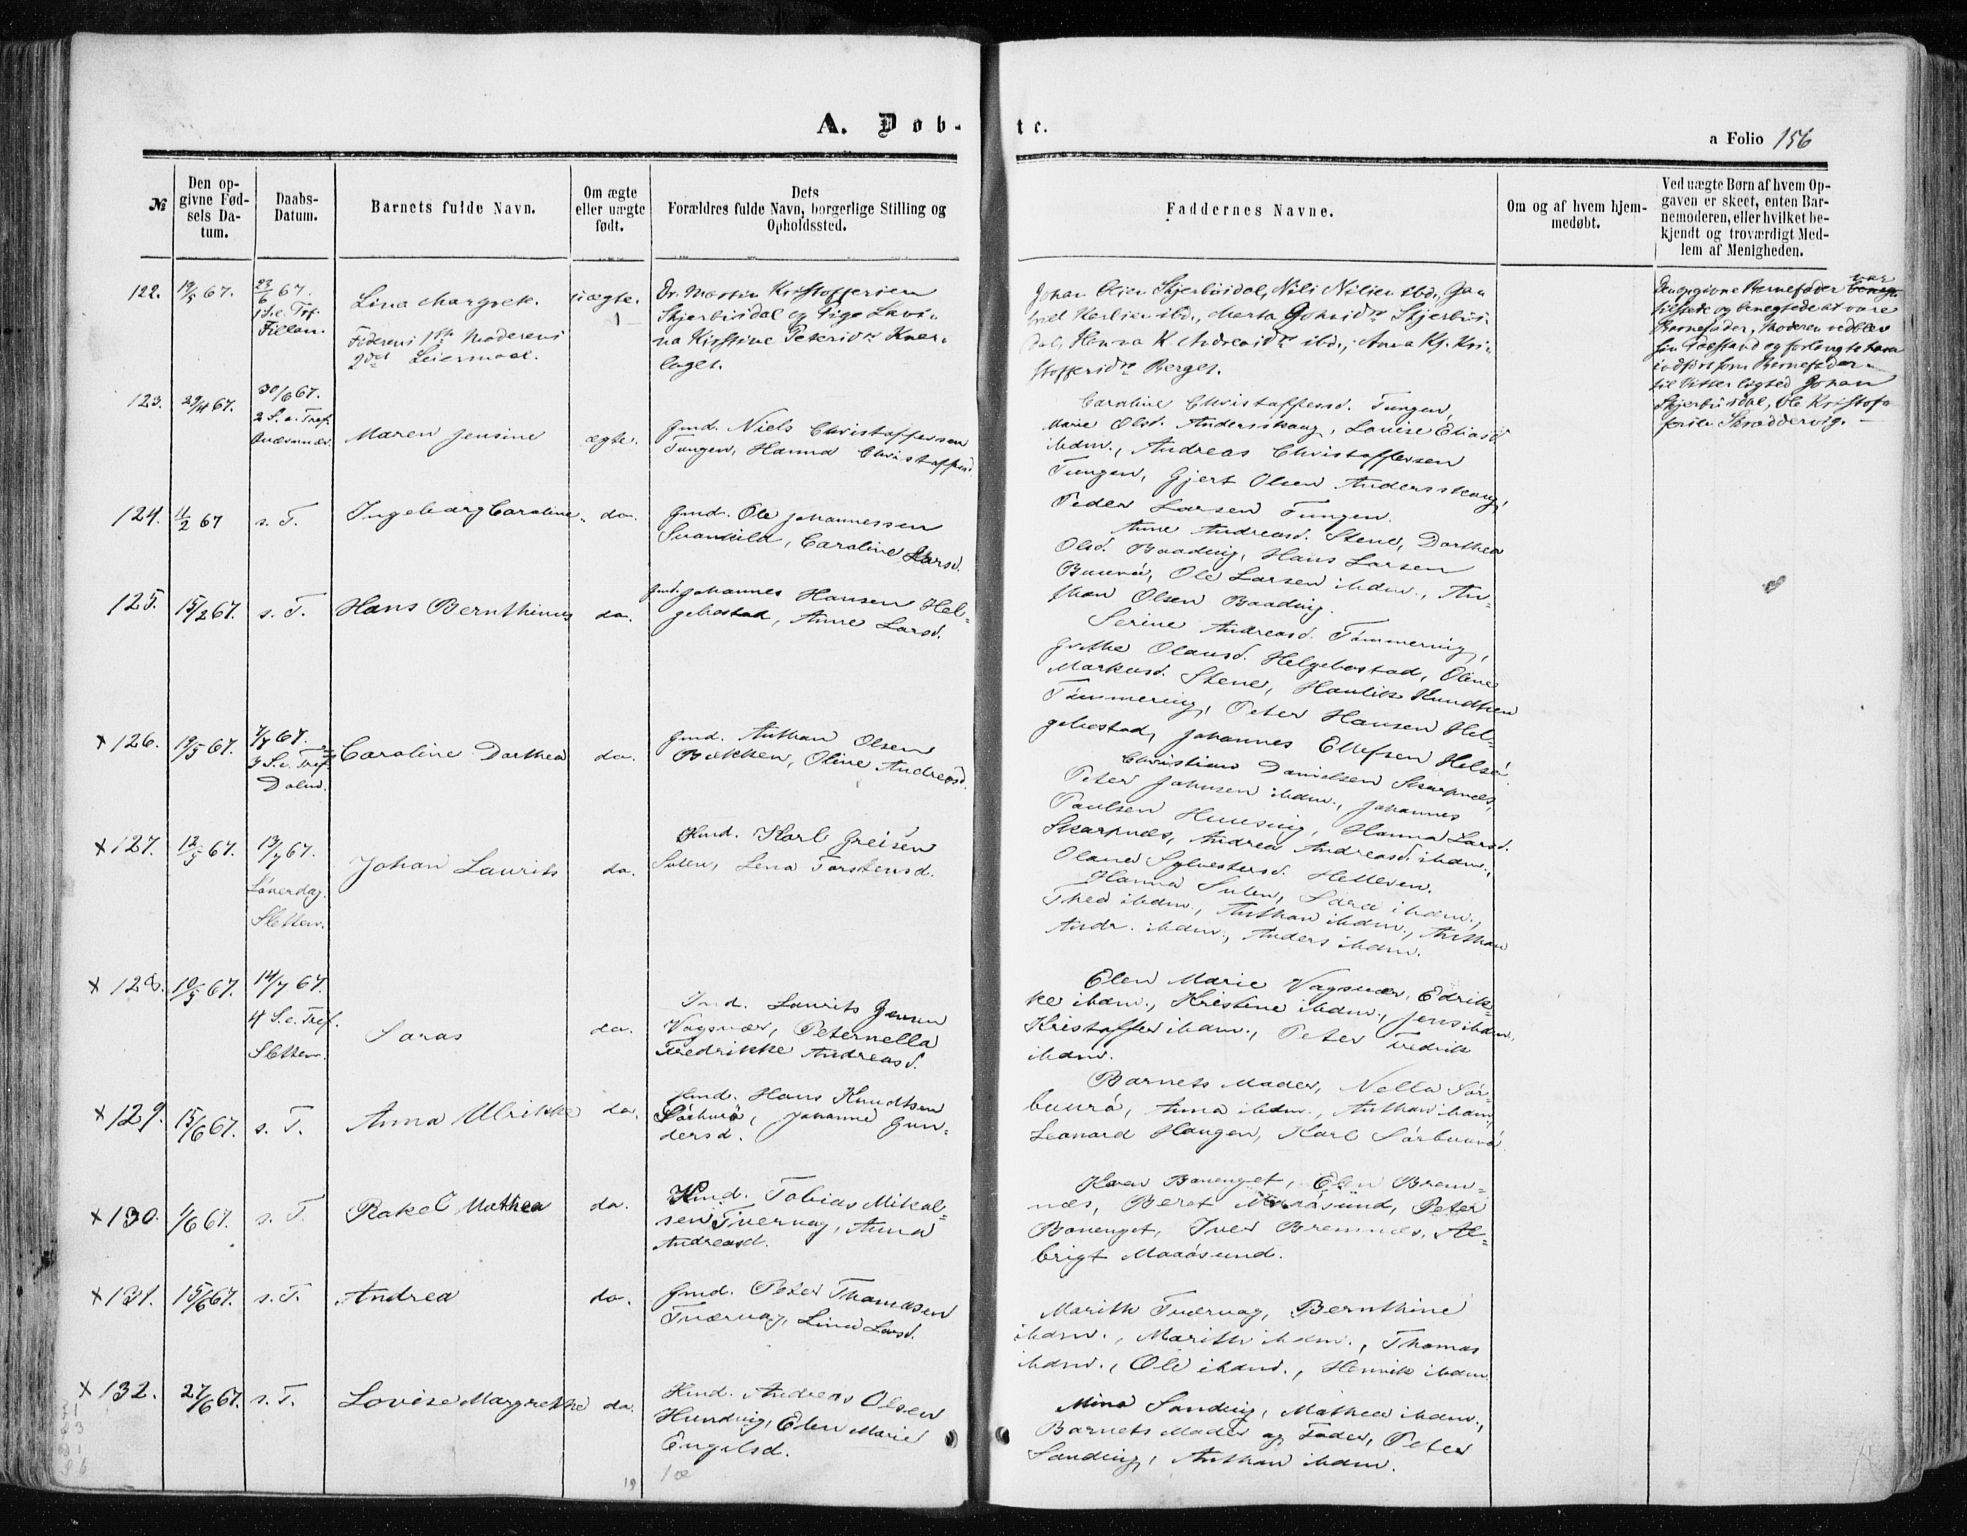 A. Døb-
te.
a Folio 156
№
Den op-
givne Fød-
sels Da-
tum.
Daabs-
Datum.
Barnets fulde Navn.
Om ægte
eller uægte
født.
Dets
Forældres fulde Navn, borgerlige Stilling og
Opholdssted.
Faddernes Navne.
Om og af hvem hjem-
medøbt.
Ved uægte Børn af hvem Op-
gaven er skeet, enten Bar-
nemoderen, eller hvilket be-
kjendt og troværdigt Med-
lem af Menigheden.
122.
19/5 67.
23/6 67.
1 S. e. Tref.
Fillan.
Lina Margrek.
Faderens 1ste Moderens
2det Leiermaal.
uægte.
Dr. Martin Kristoffersen
Skjerbusdal og Pige Lavi-
na Kirstine Petersdtr
laget.
Johan Olsen Skjerbusdal, Nils Nilsen ibd.,
ibd., Marta Johnsdtr Skjerbus-
dal, Hanna K Andreasdtr ibd., Anna Kr. Kri-
stoffersdtr Berget.
Den opgivne Barnefader var
tilstede og benegtede at være
Barnefader, Moderen vedblev
sin Paastand og forlangte ham
indført som Barnefader
til Vitterlighed Johan
Skjerbusdal, Ole Kristof-
fersen
123.
29/4 67.
30/6 67.
2 S. e. Tref.
Maren Jensine
ægte.
Gmd. Niels Christoffersen
Tungen, Hanna Christoffersd.
Caroline Christoffersd. Tungen,
Marie Olsd. Andersskaug, Lovise Eliasd
ibdm., Andreas Christoffersen
Tungen, Gjert Olsen Andersskaug,
Peder Larsen Tungen.
124.
11/2 67
s. T.
Ingeborg Caroline.
do.
Gmd. Ole Johannessen
Svankild, Caroline Larsd.
Anne Andreasd. Stene, Dorthea
Olsd. Baading, Hans Larsen
Ole Larsen ibdm., An-
than Olsen Baading.
125.
15/2 67.
s. T.
Hans Bernthinus
do.
Gmd. Johannes Hansen Hel-
gebostad, Anne Larsd.
Serine Andreasd. Tømmering,
Olausd. Helgebostad, Oline
Markusd. Stene, Knudtsen
Tømmering, Peter Hansen Hel-
gebostad, Johannes Ellefsen Helsø
× 126.
19/5 67.
7/7 67.
3 S. e. Tref.
Dolm.
Caroline Dorthea
do.
Gmd. Anthon Olsen
Bakken, Oline Andreasd.
Christian Danielsen Skarpnes,
Peter Johnsen ibdm., Johannes
Paulsen Hunsvig, Hanna Larsd.
Skarpnæs, Andrea Andreasd. ibdm.,
Olaua Sylvestersd. Helleven.
× 127.
12/5 67.
13/7 67.
Løverdag
Sletten.
Johan Laurits
do.
Hmd. Karl Greisen
Sulen, Lena Torstensd.
Hanna Sulen, Sara ibdm.,
Thea ibdm., Anthon ibdm., Anthon
Andr. ibdm., Anders ibdm.
× 128.
10/5 67.
14/7 67.
4 S. e. Tref.
Sletten.
Saras
do.
Ind. Laurits Jensen
Vagsnær, Peternella
Fredrikke Andreasd.
Elen Marie Vagsnær, Edrik-
ke ibdm., Kristine ibdm., Jens ibdm,
Kristoffer ibdm., Peter Fredrik
ibdm.
× 129.
15/6 67.
s. T.
Anna Ulrikke
do.
Hmd. Hans Knudtsen
Sørburø, Johanne Gun-
dersd.
Barnets Moder, Nella Sør-
burø, Anna ibdm., Anthon ibdm,
Leonard Haugen, Karl Sørburø
× 130.
1/6 67.
s. T.
Rakel Mathea
do.
Hmd. Tobias Mikal-
sen Tvervag, Anna
Andreasd.
Karen Bonenget, Elen Brem-
næs, Beret Mausund, Peter
Bonenget, Iver Bremnæs, Al-
brigt Maaøsund.
× 131.
15/6 67.
s. T.
Andrea
do.
Gmd. Peter Thomasen
Tværvag, Lina Larsd.
Marith Tværvag, Bernthine
ibdm., Marith ibdm., Thomas
ibdm., Ole ibdm., Henrik ibdm.
× 132.
27/6 67.
s. T.
Lovise Margrethe
do.
Hmd. Andreas Olsen
Hundvig, Elen Marie
Engelsd.
Mina Sandvig, Mathea ibdm.,
Barnets Moder og Fader, Peter
Sandvig, Anthon ibdm.